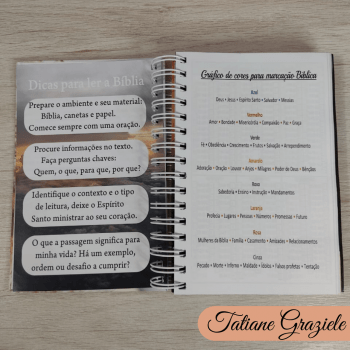 Dicas para ler a Bíblia
Prepare o ambiente e seu material:
Bíblia, canetas e papel.
Comece sempre com uma oração.
Procure informações no texto.
Faça perguntas chaves:
Quem, o que, para que, por que?
Identifique o contexto e o tipo
de leitura, deixe o Espírito
Santo ministrar ao seu coração.
O que a passagem significa para
minha vida? Há um exemplo,
ordem ou desafio a cumprir?
Gráfico de cores para marcação Bíblica
Azul
Deus • Jesus • Espírito Santo • Salvador • Messias
Vermelho
Amor • Bondade • Misericórdia • Compaixão • Paz • Graça
Verde
Fé • Obediência • Crescimento • Frutos • Salvação • Arrependimento
Amarelo
Adoração • Oração • Louvor • Anjos • Milagres • Poder de Deus • Bênçãos
Roxo
Sabedoria • Ensino • Instrução • Mandamentos
Laranja
Profecia • Lugares • Pessoas • Números • Promessas • Futuro
Rosa
Mulheres da Bíblia • Família • Casamento • Amizades • Relacionamentos
Cinza
Pecado • Morte • Inferno • Maldade • Idólica • Falsos profetas • Tentação
Tatiane Graziele